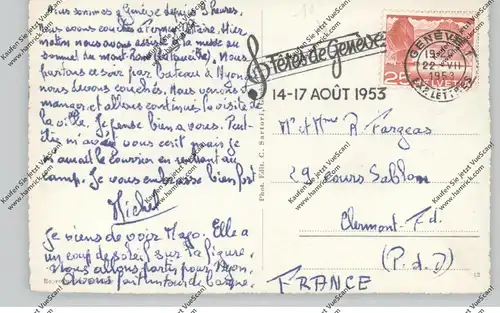 Nous sommes à Genève depuis 3 heures.
Nous avons couché à Ferney-Voltaire. Hier
matin nous avons assisté à la messe au
sommet du mont
Nous
partons ce soir par bateau à Nyon
nous devons coucher. Nous venons de
manger et allons continuer la visite de
la ville. Je pense bien à vous. Peut-
être m'avez vous écrit mais je
n'aurai le courrier en rentrant au
camp. Je vous embrasse bien fort
Michel
Je viens de voir Mayo. Elle a
un coup de soleil sur la figure.
Nous allons partir pour Nyon.
Fêtes de Genève
14-17 AOÛT 1953
GENÈVE 1
19-
22 VII
1953
EXP. LETTRES
25
HELVETIA
Phot. Edit. C. Sartori,
Mr et Mme R. Fargeas
29 cours Sablon
Clermont-Fd.
(P. d. D)
FRANCE
Kaufen Sie jetzt VueScan!
www.hamrick.com